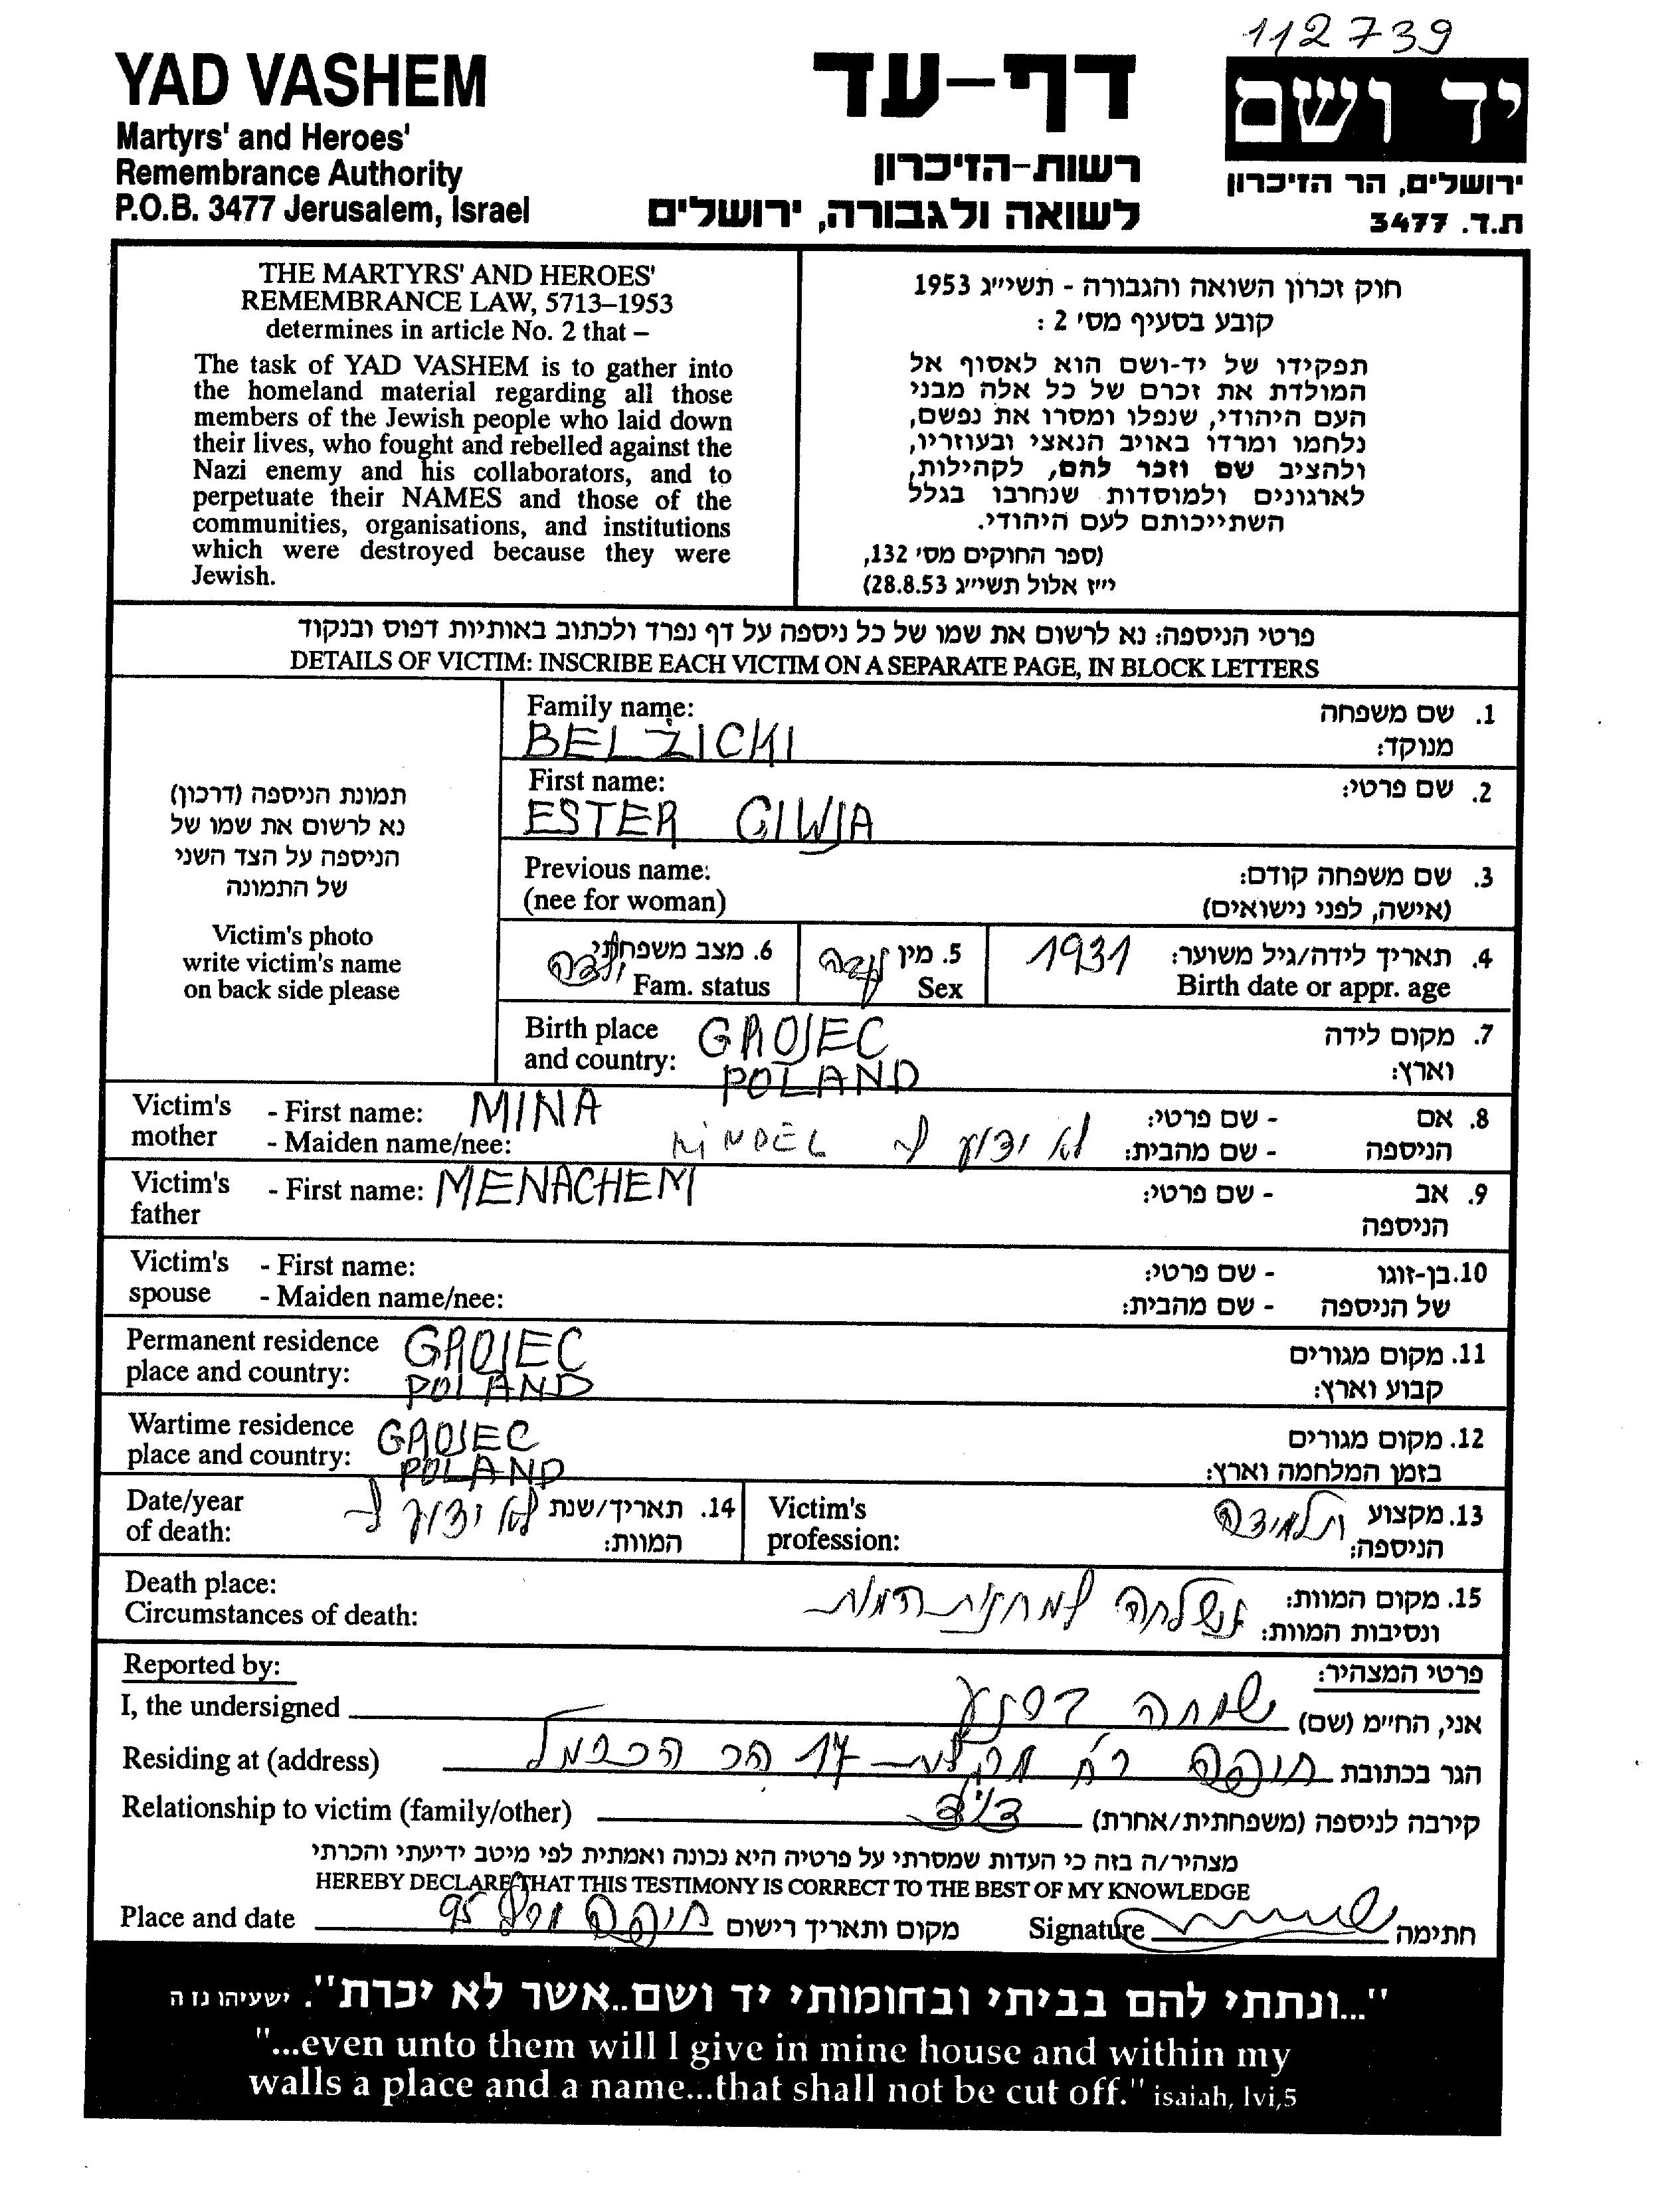 112739
YAD VASHEM
Martyrs' and Heroes'
Remembrance Authority
P.O.B. 3477 Jerusalem, Israel
דף-עד
רשות-הזיכרון
לשואה ולגבורה, ירושלים
יד ושם
ירושלים, הר הזיכרון
ת.ד. 3477
THE MARTYRS' AND HEROES'
REMEMBRANCE LAW, 5713–1953
determines in article No. 2 that –
The task of YAD VASHEM is to gather into
the homeland material regarding all those
members of the Jewish people who laid down
their lives, who fought and rebelled against the
Nazi enemy and his collaborators, and to
perpetuate their NAMES and those of the
communities, organisations, and institutions
which were destroyed because they were
Jewish.
חוק זכרון השואה והגבורה - תשי״ג 1953
קובע בסעיף מס׳ 2 :
תפקידו של יד-ושם הוא לאסוף אל
המולדת את זכרם של כל אלה מבני
העם היהודי, שנפלו ומסרו את נפשם,
נלחמו ומרדו באויב הנאצי ובעוזריו,
ולהציב שם וזכר להם, לקהילות,
לארגונים ולמוסדות שנחרבו בגלל
השתייכותם לעם היהודי.
(ספר החוקים מס׳ 132,
י״ז אלול תשי״ג 28.8.53)
פרטי הניספה: נא לרשום את שמו של כל ניספה על דף נפרד ולכתוב באותיות דפוס ובנקוד
DETAILS OF VICTIM: INSCRIBE EACH VICTIM ON A SEPARATE PAGE, IN BLOCK LETTERS
תמונת הניספה (דרכון)
נא לרשום את שמו של
הניספה על הצד השני
של התמונה
Victim's photo
write victim's name
on back side please
Family name: 1. שם משפחה
BELŻICKI מנוקד:
First name: 2. שם פרטי:
ESTER CIWJA
Previous name: 3. שם משפחה קודם:
(nee for woman) (אישה, לפני נישואים)
6. מצב משפחתי ילדה
Fam. status
5. מין נקבה
Sex
4. תאריך לידה/גיל משוער: 1931
Birth date or appr. age
Birth place GROJEC 7. מקום לידה
and country: POLAND וארץ:
Victim's - First name: MINA - שם פרטי: 8. אם
mother - Maiden name/nee: MINDEL לא ידוע לי - שם מהבית: הניספה
Victim's - First name: MENACHEM - שם פרטי: 9. אב
father הניספה
Victim's - First name: - שם פרטי: 10. בן-זוגו
spouse - Maiden name/nee: - שם מהבית: של הניספה
Permanent residence GROJEC 11. מקום מגורים
place and country: POLAND קבוע וארץ:
Wartime residence GROJEC 12. מקום מגורים
place and country: POLAND בזמן המלחמה וארץ:
Date/year 14. תאריך/שנת לא ידוע לי
of death: המוות:
Victim's 13. מקצוע תלמידה
profession: הניספה:
Death place: 15. מקום המוות:
Circumstances of death: ונסיבות המוות: נשלחה למחנות המוות
Reported by: פרטי המצהיר:
I, the undersigned אני, החי״מ (שם) שמחה
Residing at (address) הגר בכתובת חיפה רח 17 הכרמל
Relationship to victim (family/other) קירבה לניספה (משפחתית/אחרת) דודה
מצהיר/ה בזה כי העדות שמסרתי על פרטיה היא נכונה ואמתית לפי מיטב ידיעתי והכרתי
HEREBY DECLARE THAT THIS TESTIMONY IS CORRECT TO THE BEST OF MY KNOWLEDGE
Place and date מקום ותאריך רישום חיפה 95 Signature חתימה
"...ונתתי להם בביתי ובחומותי יד ושם..אשר לא יכרת". ישעיהו נז ה
"...even unto them will I give in mine house and within my
walls a place and a name...that shall not be cut off." isaiah, lvi,5